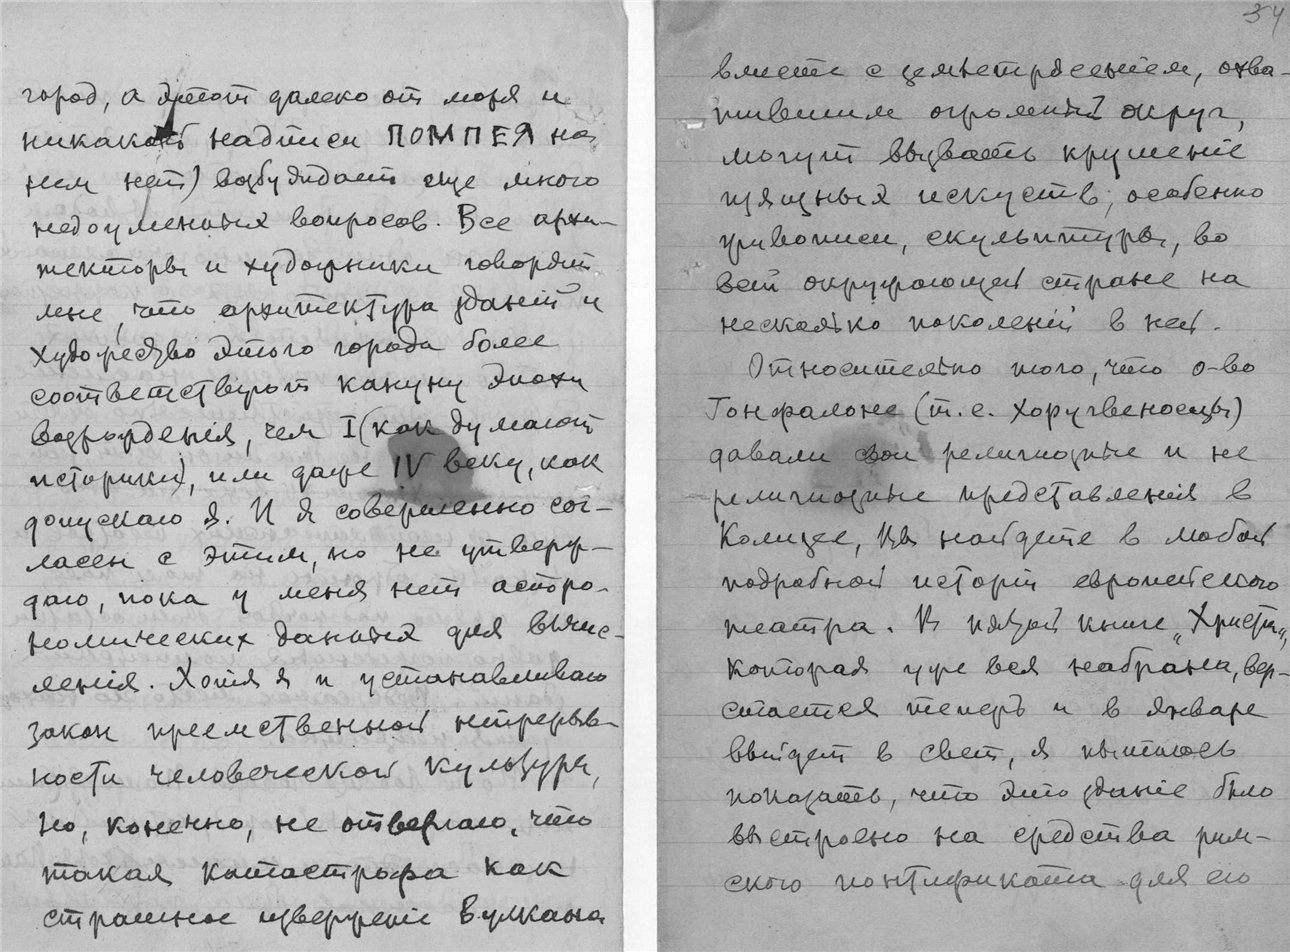 город, а этот далеко от моря и
никакой надписи ПОМПЕЯ на
нем нет) возбуждает еще много
недоуменных вопросов. Все архи-
текторы и художники говорят
мне, что архитектура зданий и
художество этого города более
соответствуют кануну эпохи
возрождения, чем I (как думают
историки), или даже IV веку, как
допускаю я. И я совершенно сог-
ласен с этим, но не утверж-
даю, пока у меня нет астро-
номических данных для вычис-
ления. Хотя я и устанавливаю
закон преемственной непрерыв-
ности человеческой культуры,
но, конечно, не отвергаю, что
такая катастрофа как
страшное извержение Вулкана
34
вместе с землетрясением, охва-
тившим огромный округ,
могут вызвать крушение
изящных искуств, особенно
живописи, скульптуры, во
всей окружающей стране на
несколько поколений в ней.
Относительно того, что о-во
Гонфалоне (т.е. Хоругвеносцы)
давали свои религиозные и не
религиозные представления в
Колизее, Вы найдете в любой
подробной истории европейского
театра. В пятой книге „Христа",
которая уже вся набрана, вер-
стается теперь и в январе
выйдет в свет, я пытаюсь
показать, что это здание было
выстроено на средства рим-
ского понтификата для его